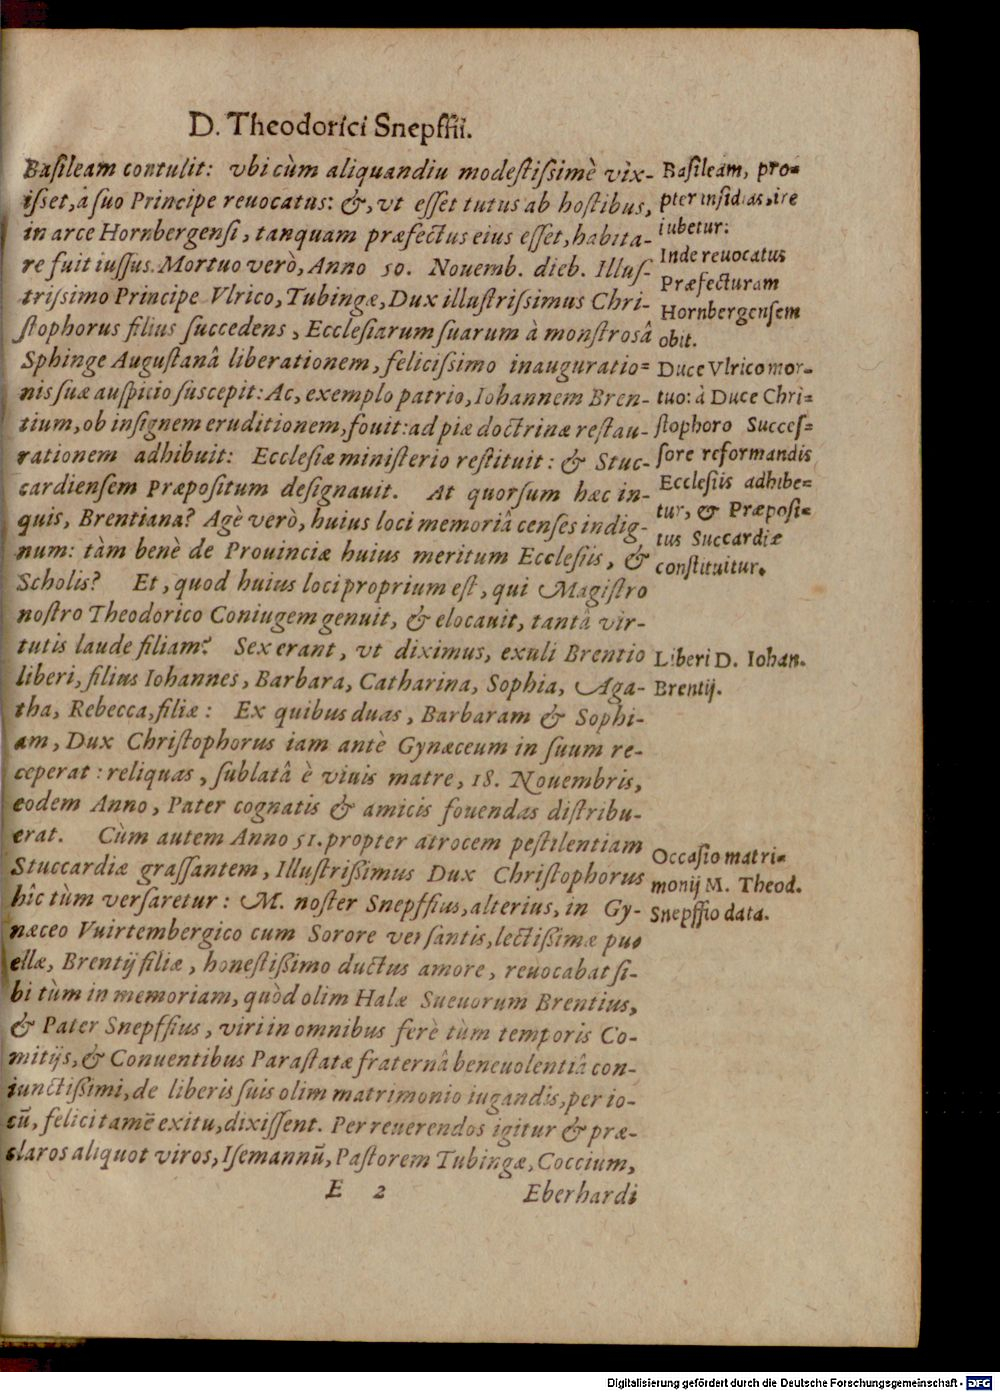 D. Theodorici Snepffii.
Basileam contulit: vbi cùm aliquandiu modestissimè vix-
isset, à suo Principe reuocatus: &, vt esset tutus ab hostibus,
in arce Hornbergensi, tanquam præfectus eius esset, habita-
re fuit iussus. Mortuo verò, Anno 50. Nouemb. dieb. Illus-
trissimo Principe Vlrico, Tubingæ, Dux illustrissimus Chri-
stophorus filius succedens, Ecclesiarum suarum à monstrosâ
Sphinge Augustanâ liberationem, felicissimo inauguratio=
nis suæ auspicio suscepit: Ac, exemplo patrio, Iohannem Bren-
tium, ob insignem eruditionem, fouit: ad piæ doctrinæ restau-
rationem adhibuit: Ecclesiæ ministerio restituit: & Stuc-
cardiensem Præpositum designauit. At quorsum hæc in-
quis, Brentiana? Agè verò, huius loci memoriâ censes indig-
num: tàm benè de Prouinciæ huius meritum Ecclesiis, &
Scholis? Et, quod huius loci proprium est, qui Magistro
nostro Theodorico Coniugem genuit, & elocauit, tantâ vir-
tutis laude filiam? Sex erant, vt diximus, exuli Brentio
liberi, filius Iohannes, Barbara, Catharina, Sophia, Aga-
tha, Rebecca, filiæ: Ex quibus duas, Barbaram & Sophi-
am, Dux Christophorus iam antè Gynæceum in suum re-
ceperat: reliquas, sublatâ è viuis matre, 18. Nouembris,
eodem Anno, Pater cognatis & amicis fouendas distribu-
erat. Cùm autem Anno 51. propter atrocem pestilentiam
Stuccardiæ grassantem, Illustrißimus Dux Christophorus
hîc tùm versaretur: M. noster Snepffius, alterius, in Gy-
næceo Vuirtembergico cum Sorore versantis, lectißimæ pu-
ellæ, Brentij filiæ, honestißimo ductus amore, reuocabat si-
bi tùm in memoriam, quòd olim Halæ Sueuorum Brentius,
& Pater Snepffius, viri in omnibus ferè tùm temporis Co-
mitijs, & Conuentibus Parastatæ fraternâ beneuolentiâ con-
iunctißimi, de liberis suis olim matrimonio iugandis, per io-
cũ, felici tamẽ exitu, dixissent. Per reuerendos igitur & præ-
claros aliquot viros, Isemannũ, Pastorem Tubingæ, Coccium,
E 2 Eberhardi
Basileam, pro-
pter insidias, ire
iubetur:
Inde reuocatus
Præfecturam
Hornbergensem
obit.
Duce Vlrico mor-
tuo: à Duce Chri=
stophoro Succes=
sore reformandis
Ecclesiis adhibe=
tur, & Præposi=
tus Succardiæ
constituitur.
Liberi D. Iohan.
Brentij.
Occasio matri=
monij M. Theod.
Snepffio data.
Digitalisierung gefördert durch die Deutsche Forschungsgemeinschaft - DFG